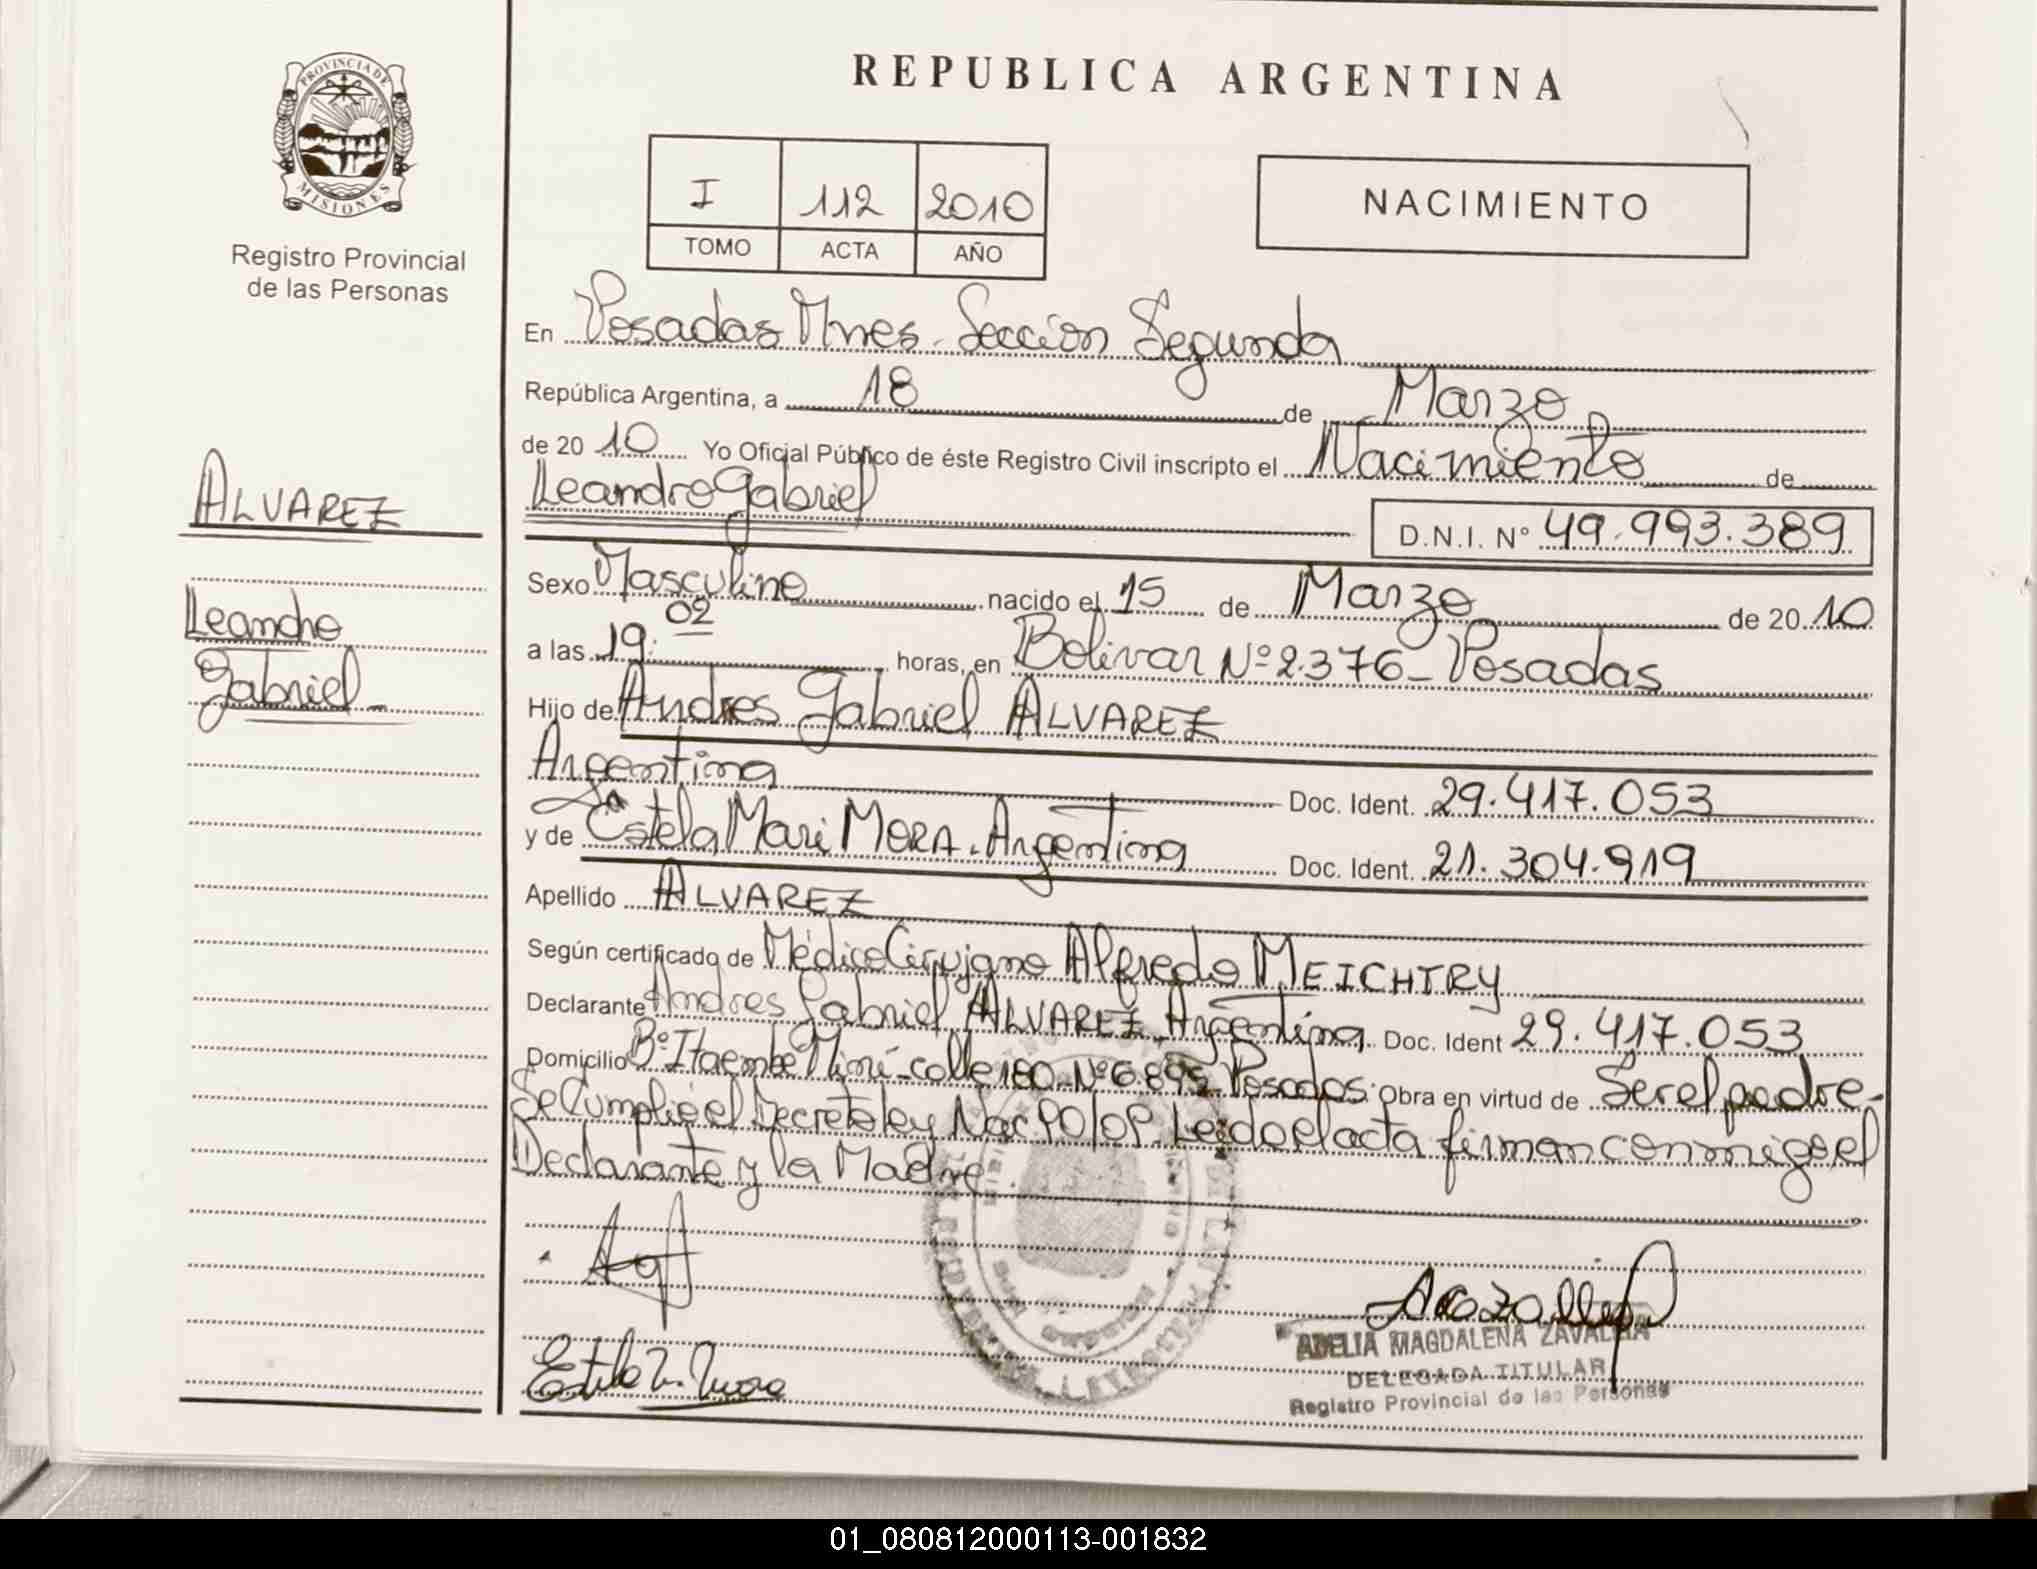 PROVINCIA DE
MISIONES
Registro Provincial
de las Personas
ALVAREZ
Leandro
Gabriel_
REPUBLICA ARGENTINA
I 112 2010
TOMO ACTA AÑO
NACIMIENTO
En Posadas Mnes. Seccion Segunda
República Argentina, a 18 de Marzo
de 2010 Yo Oficial Público de éste Registro Civil inscripto el Nacimiento de
Leandro Gabriel
D.N.I. Nº 49.993.389
Sexo Masculino nacido el 15 de Marzo de 2010
a las 19:02 horas, en Bolivar Nº 2.376_ Posadas
Hijo de Andres Gabriel ALVAREZ
Argentina Doc. Ident. 29.417.053
y de Estela Mari MORA. Argentina Doc. Ident. 21.304.919
Apellido ALVAREZ
Según certificado de Médico Cirujano Alfredo MEICHTRY
Declarante Andres Gabriel ALVAREZ Argentina Doc. Ident 29.417.053
Domicilio Bº Itaembe Miní-calle 180-Nº 6.895 Posadas. Obra en virtud de Ser el padre-
Se Cumplio el Decreto ley Nac Leido el acta firman conmigo el
Declarante y la Madre.
Estela M. Mora
ADELIA MAGDALENA ZAVALLA
DELEGADA TITULAR
Registro Provincial de las Personas
01_080812000113-001832